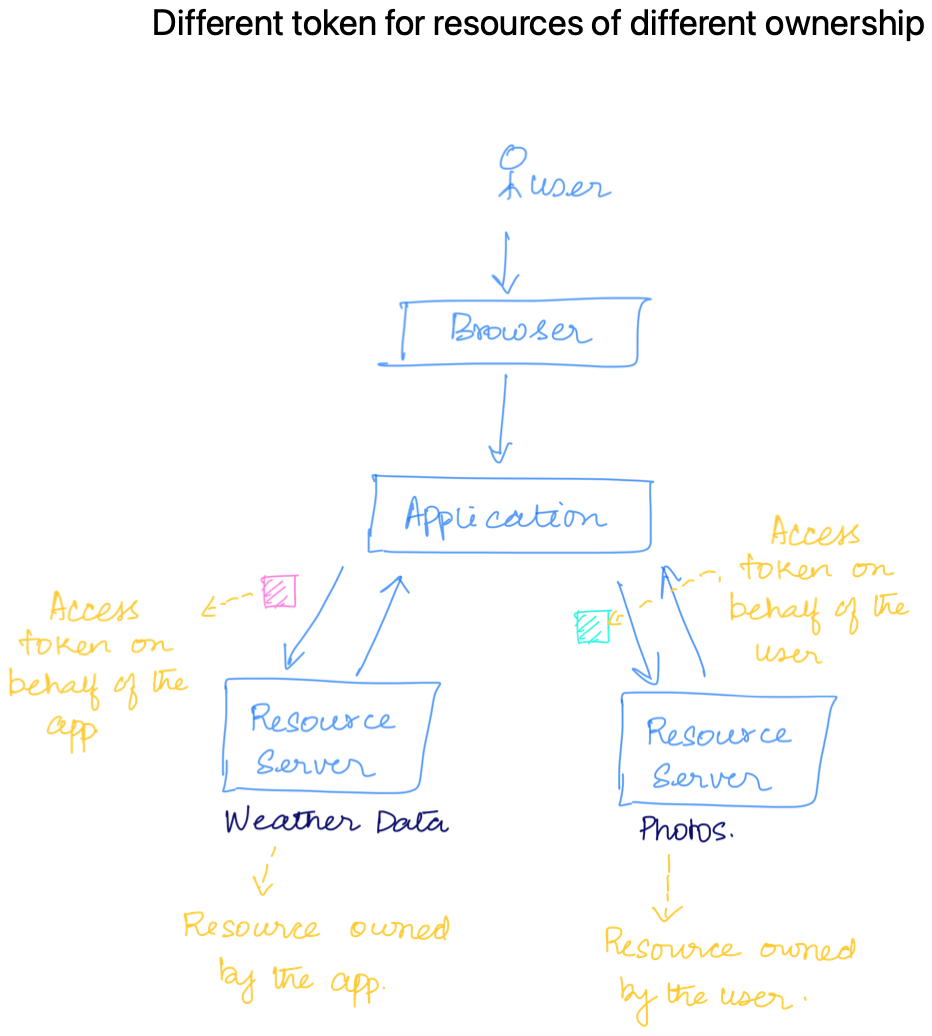 Different token for resources of different ownership
user
Browser
Application
Access
token on
behalf of the
user
Access
token on
behalf of the
app
Resource
Server
Weather Data
Resource
Server
Photos.
Resource owned
by the app.
Resource owned
by the user.